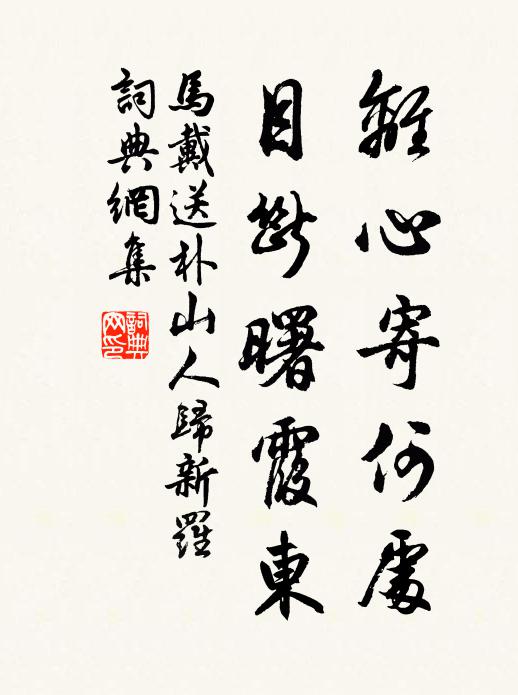 離心寄何處
目斷曙霞東
馬戴送朴山人歸新羅
詞典網集
詞典網印